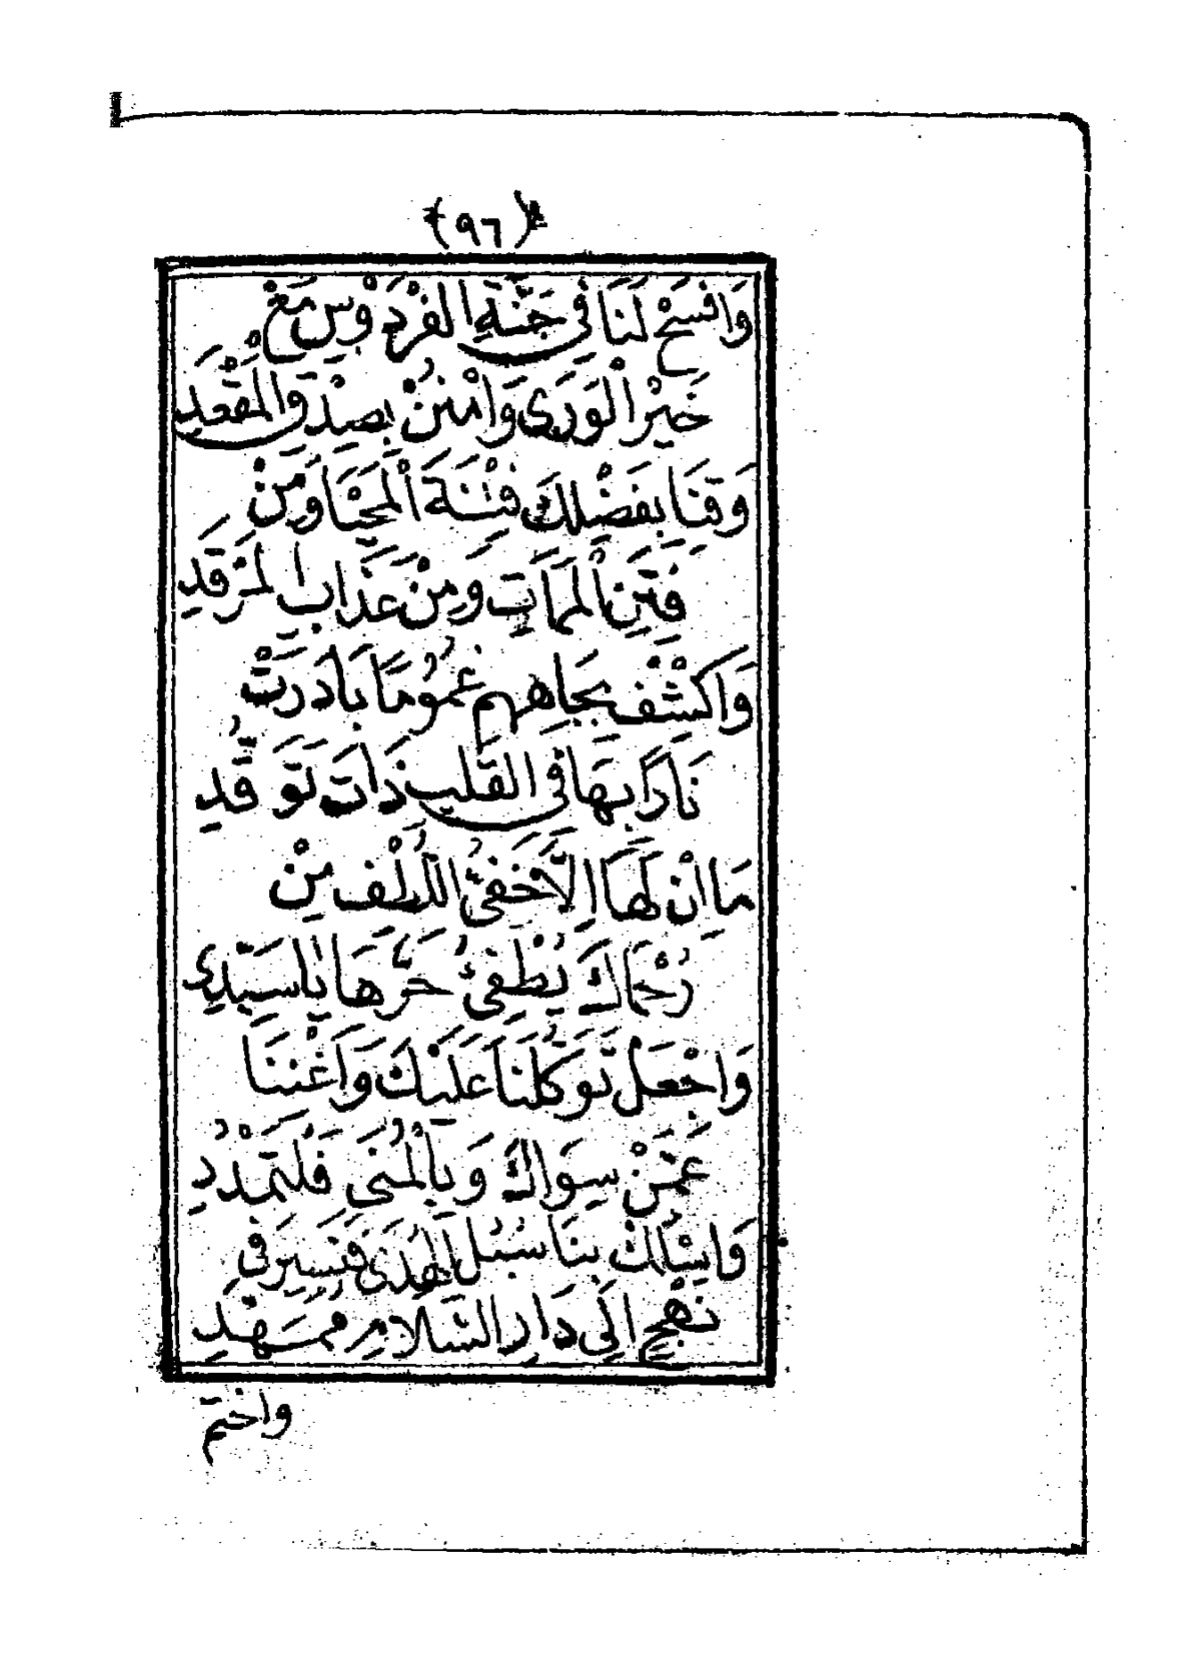 (٩٦)
وَافْسَحْ لَنَا فِي جَنَّةِ الْفِرْدَوْسِ مَعْ
خَيْرِ الْوَرَى وَامْنُنْ بِصِدْقِ الْمَقْعَدِ
وَقِنَا بِفَضْلِكَ فِتْنَةَ الْمَحْيَا وَمِنْ
فِتَنِ الْمَمَاتِ وَمِنْ عَذَابِ الْمَرْقَدِ
وَاكْشِفْ بِجَاهِهِمِ غُمُومًا بَادَرَتْ
نَارًا بِهَا فِي الْقَلْبِ ذَاتَ تَوَقُّدِ
مَا اِنْ لَهَا اِلَّا خَفِيُّ اللُّطْفِ مِنْ
رُحْمَاكَ يُطْفِئُ حَرَّهَا يَا سَيِّدِي
وَاجْعَلْ تَوَكُّلَنَا عَلَيْكَ وَاَغْنِنَا
عَمَّنْ سِوَاكَ وَبِالْمُنَى فَلْتَمْدُدِ
وَاسْلُكْ بِنَا سُبُلَ الْهُدَى فَنَسِيرَ فِي
نَهْجٍ اِلَى دَارِ السَّلَامِ مُمَهَّدِ
واختم